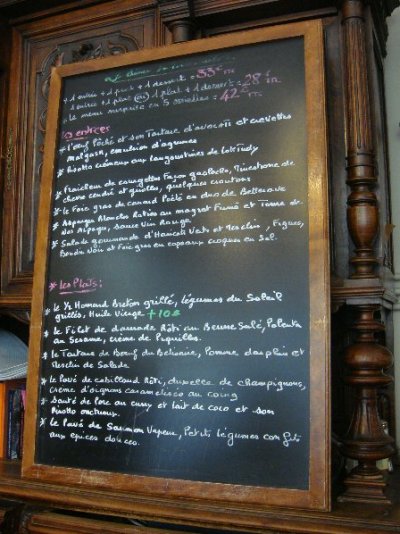 + 1 entrée + 1 plat + 1 dessert = 33€
1 entrée + 1 plat ou 1 plat + 1 dessert = 28€
menu surprise en 5 = 42€
Les entrées
* l'œuf Poché et son Tartare d'avocats et crevettes
Malgash, emulsion d'agrumes
* Risotto crémeux aux langoustines de Loktudy
* Fraîcheur de courgettes Façon gaspacho,
chèvre cendré et quelques croutons
* Le Foie gras de canard Poêlé en duo de Betteraves
* Asperges Blanches Roties au magret Fumé et
des Asperges, Sauce Vin Rouge
* Salade gourmande d'Haricots Verts et Mesclun, Figues,
Boudin Noir et Foie gras en copeaux croquer en Sel
* Les Plats :
* le 1/2 Homard Breton grillé, légumes du Soleil
grillés, Huile Vierge +10€
* Le Filet de daurade Rôti au Beurre Salé, Polenta
au Sesame, crème de Piquillos.
* Le Tartare de Bœuf du , Pomme dauphin et
Mesclun de Salade
* Le Pavé de cabillaud Rôti, duxelle de champignons,
crème d'oignons caramelisés au
* Sauté de Porc au curry et lait de coco et son
Risotto onctueux.
* Le Pavé de Saumon Vapeur, Petits légumes confits
aux epices douces.